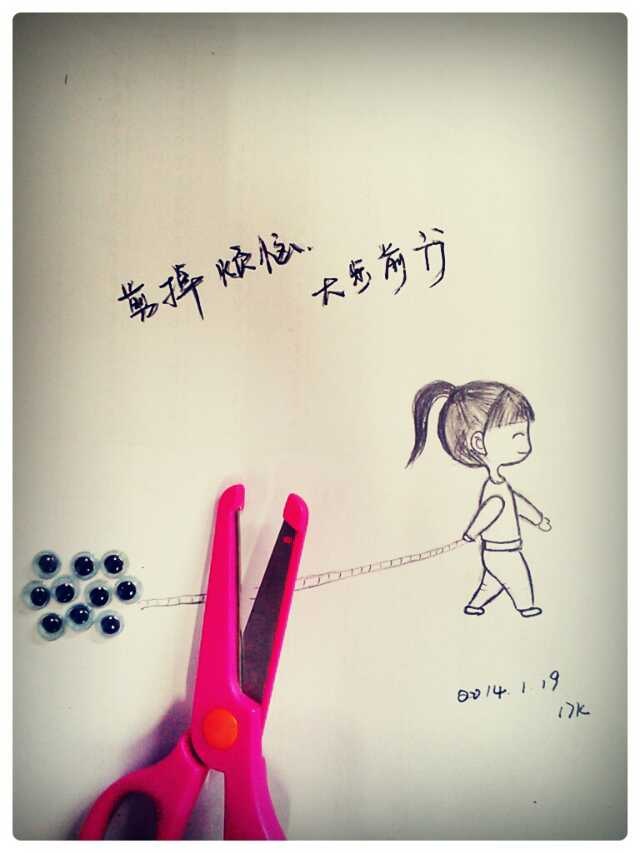 剪掉烦恼.
大步前行
2014.1.19
17K